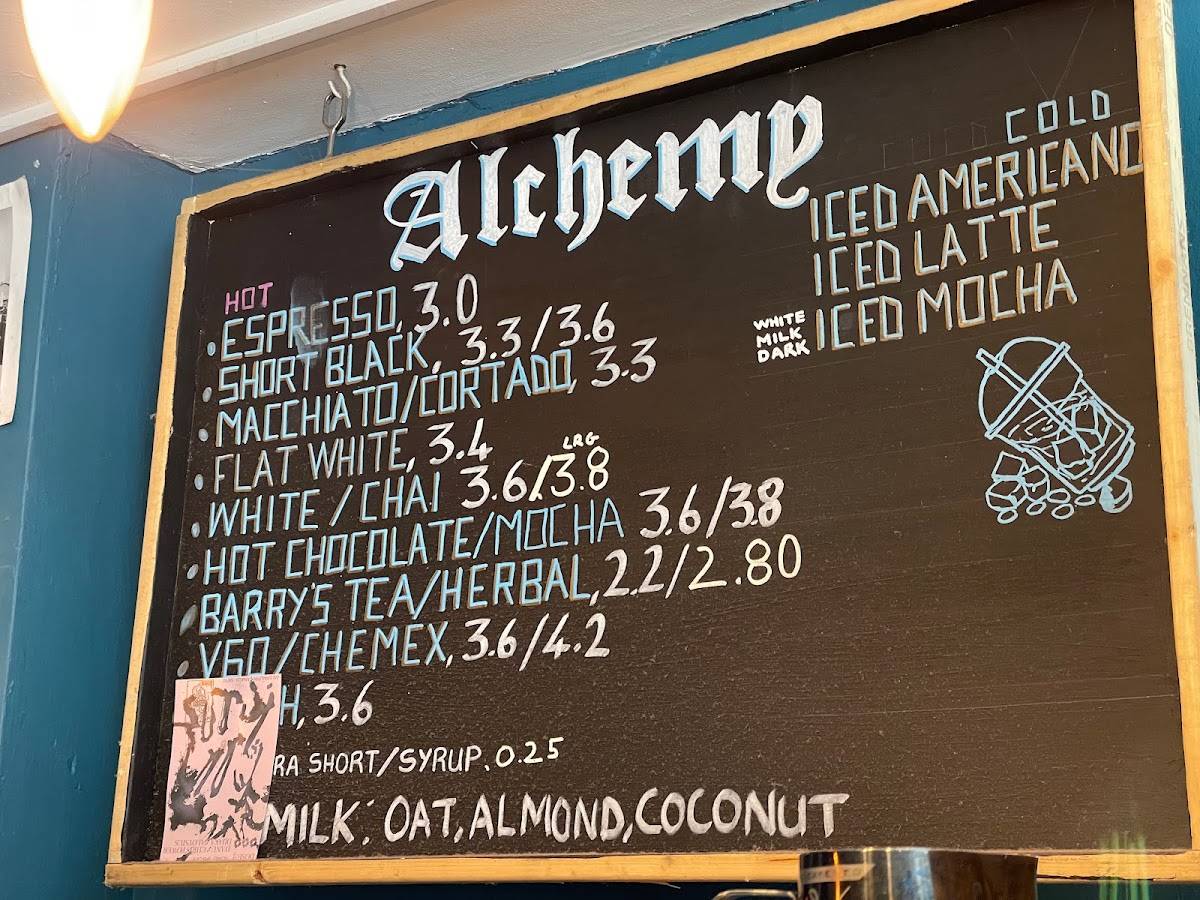 Alchemy
HOT
ESPRESSO, 3.0
SHORT BLACK, 3.3/3.6
MACCHIATO/CORTADO, 3.3
FLAT WHITE, 3.4
LRG
WHITE / CHAI 3.6/3.8
HOT CHOCOLATE/MOCHA 3.6/3.8
BARRY'S TEA/HERBAL, 2.2/2.80
V60/CHEMEX, 3.6/4.2
H, 3.6
RA SHORT/SYRUP. 0.25
MILK: OAT, ALMOND, COCONUT
COLD
ICED AMERICANO
ICED LATTE
ICED MOCHA
WHITE
MILK
DARK